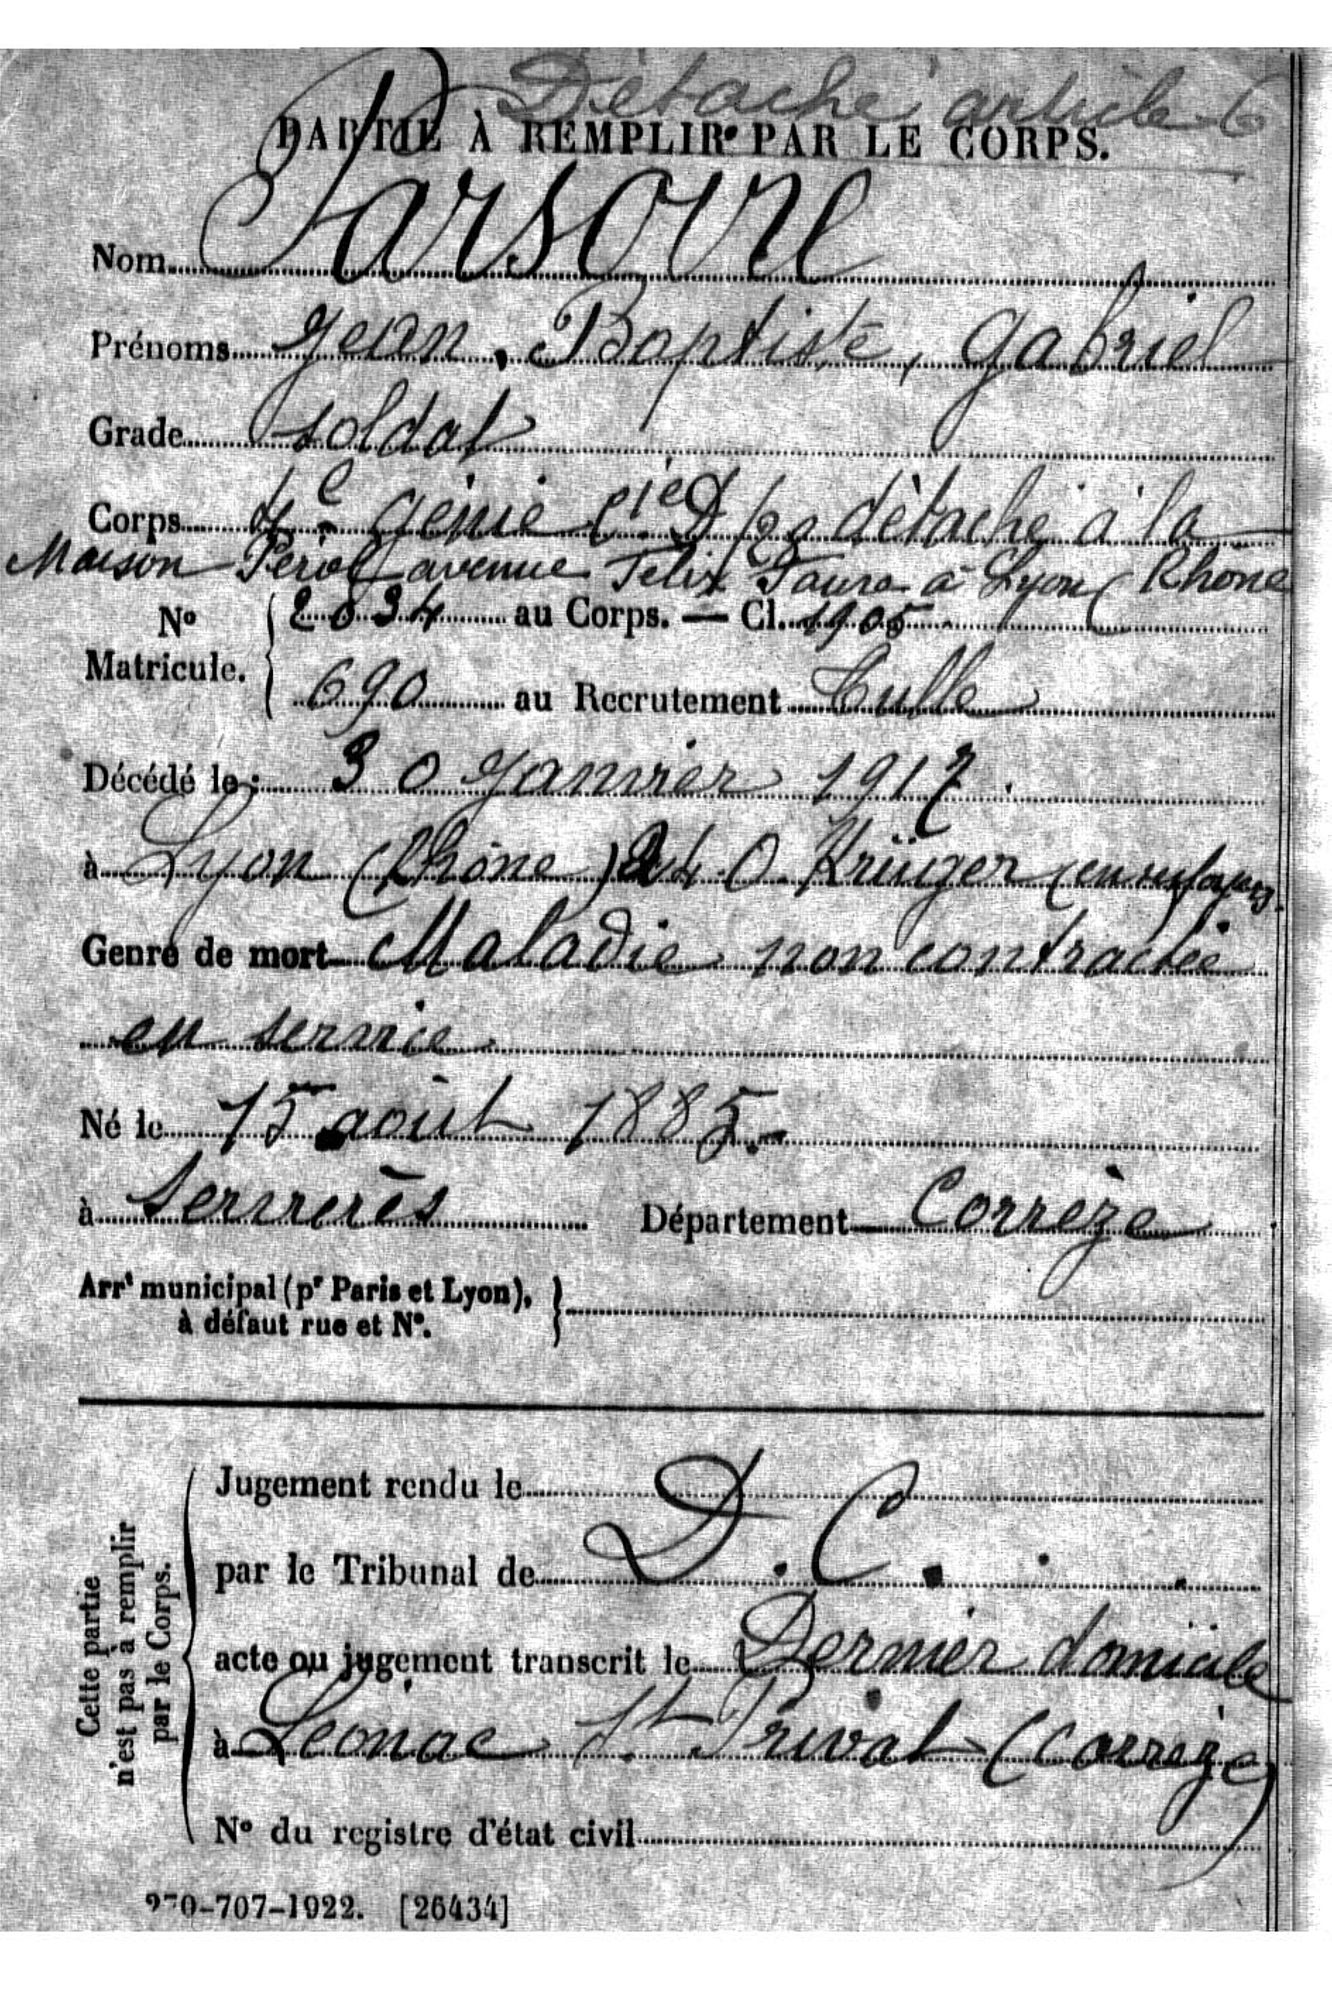 Détaché article 6
PARTIE À REMPLIR PAR LE CORPS.
Nom Parsoire
Prénoms Jean, Baptiste, Gabriel
Grade Soldat
Corps 4e Génie Cie D/20 détaché à la
Maison Pérol avenue Félix Faure à Lyon (Rhône
No Matricule. { 2034 au Corps. — Cl. 1905
690 au Recrutement Tulle
Décédé le : 30 Janvier 1917
à Lyon (Rhône) 24 O Krüger (
Genre de mort Maladie non contractée
en service
Né le 15 août 1885.
à Servierès Département Corrèze
Arrt municipal (pr Paris et Lyon), à défaut rue et No. }
Cette partie n'est pas à remplir par le Corps.
Jugement rendu le
par le Tribunal de D. C.
acte ou jugement transcrit le Dernier domicile
à St Privat (Corrèze)
No du registre d'état civil
-707-1922. [26434]